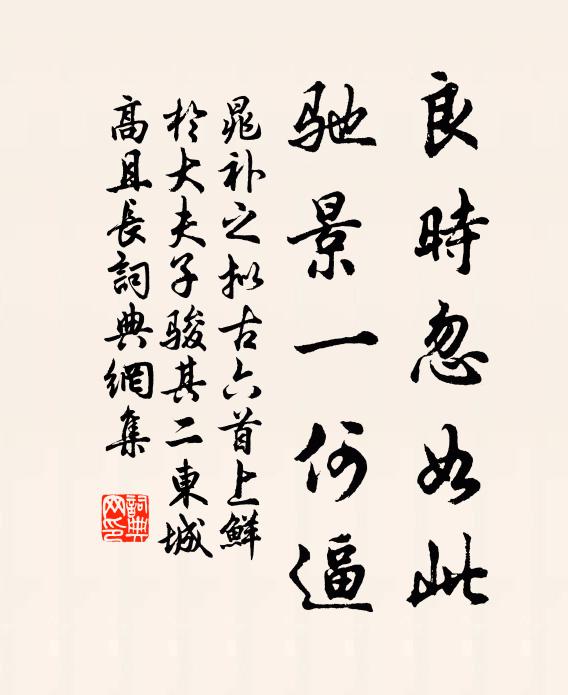 良時忽如此
馳景一何逼
晁补之拟古六首上鮮
於大夫子骏其二東城
高且長詞典網集
詞典
网印